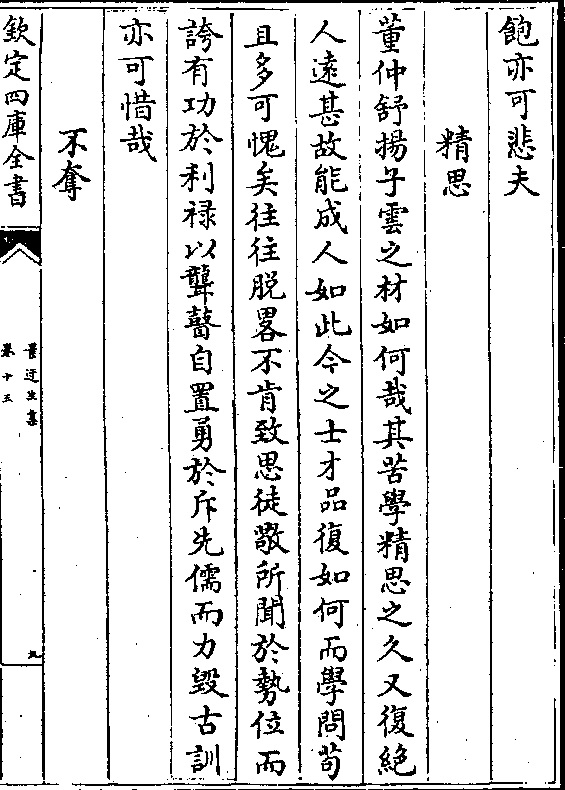 飽亦可悲夫
精思
董仲舒揚子雲之材如何哉其苦學精思之久又復絶
人遠甚故能成人如此今之士才品復如何而學問苟
且多可愧矣往往脱畧不肯致思徒敬所聞於勢位而
誇有功於利禄以聾瞽自置勇於斥先儒而力毀古訓
亦可惜哉
不奪
欽定四庫全書
景迂生集
卷十五
九